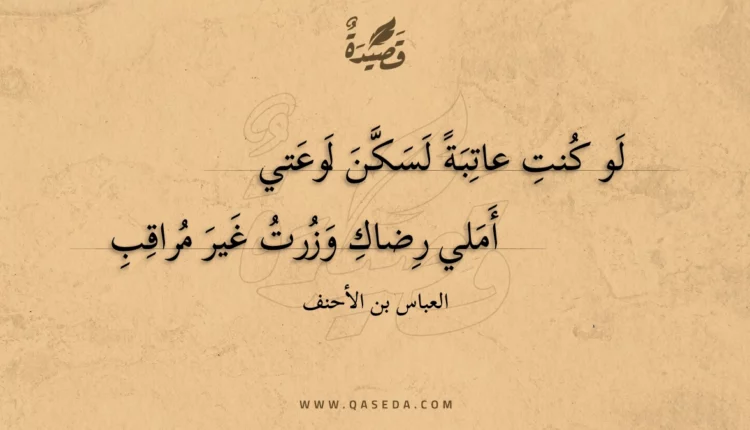 قَصِيْدَةٌ
لَو كُنتِ عاتِبَةً لَسَكَّنَ لَوعَتي
أَمَلي رِضاكِ وَزُرتُ غَيرَ مُراقِبِ
العباس بن الأحنف
WWW.QASEDA.COM